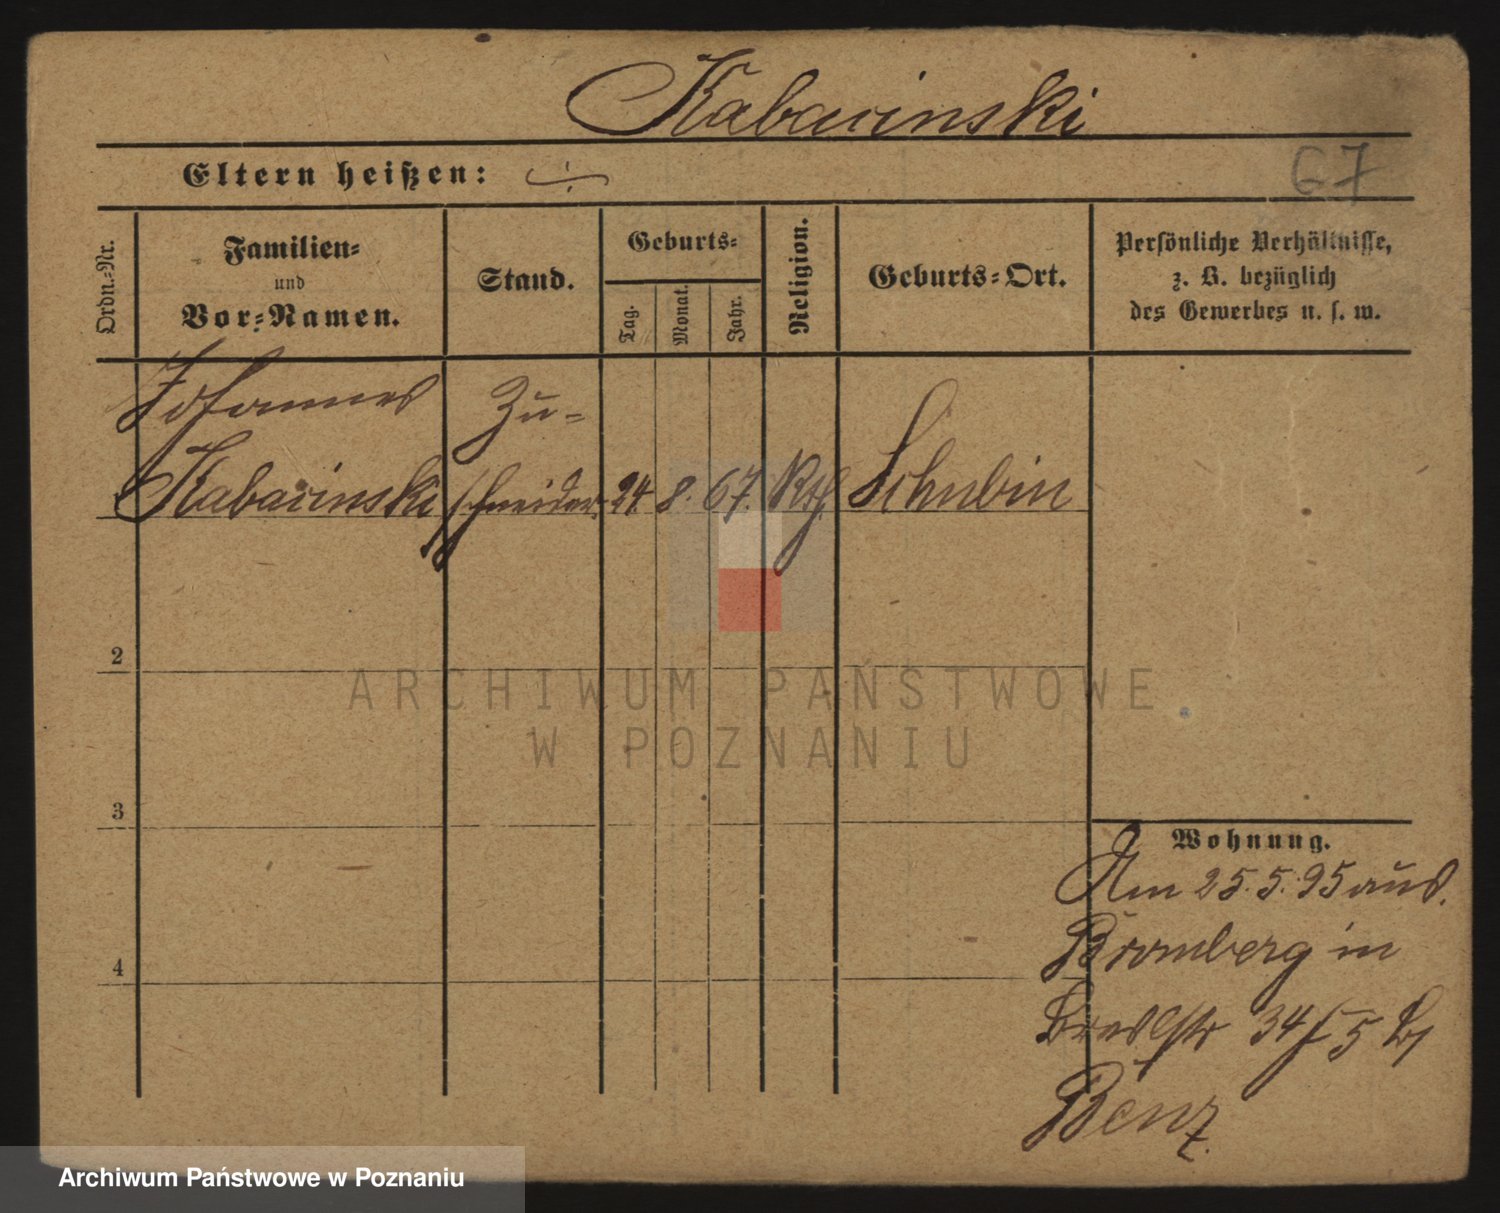 Kabacinski
Eltern heißen: ÷
67
Ordn.-Nr.
Familien-
und
Vor-Namen.
Stand.
Geburts-
Tag.
Monat.
Jahr.
Religion.
Geburts-Ort.
Persönliche Verhältnisse,
z. B. bezüglich
des Gewerbes u. s. w.
Johannes
Kabacinski
Zu-
schneider.
24. 8. 67. Kth. Schubin
2
3
4
Wohnung.
Am 25. 5. 95 aus.
Bromberg in
Breslstr 34
Benz.
ARCHIWUM PAŃSTWOWE
W POZNANIU
Archiwum Państwowe w Poznaniu